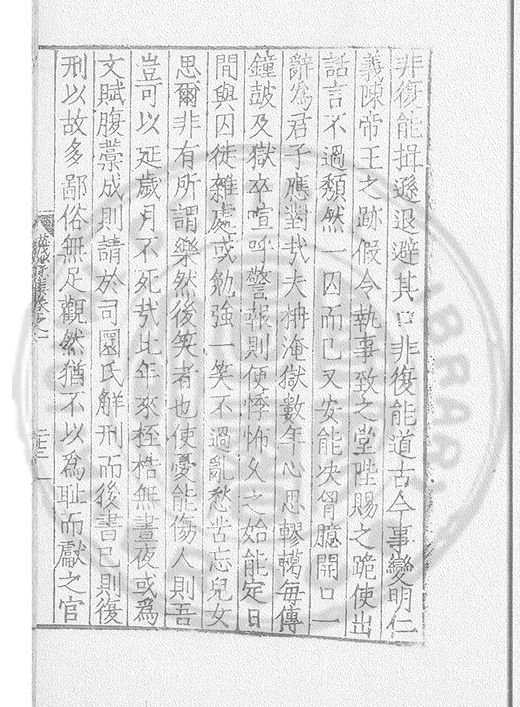 非復能揖遜退避其口非復能道古今事變明仁
義陳帝王之跡假令執事致之堂陛賜之跪使出
話言不過頽然一囚而已又安能决胷臆開口一
辭為君子應對㢤夫枏淹獄數年心思轇轕每傳
鐘皷及獄卒喧呼警報則便悸怖久之始能定日
間與囚徒雜處或勉強一笑不過亂愁苦忘兒女
思爾非有所謂樂然後笑者也使憂能傷人則吾
豈可以延歲月不死㢤比年來桎梏無晝夜或為
文賦腹藁成則請於司圜氏解刑而後書已則復
刑以故多鄙俗無足觀然猶不以為耻而獻之官
卷之一
LIBRARY